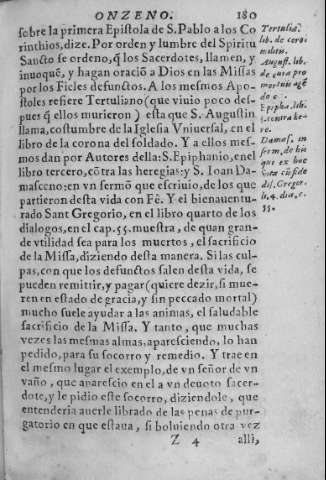 ONZENO. 180
sobre la primera Epistola de S. Pablo a los Co
rinthios, dize. Por orden y lumbre del Spiritu
Sancto se ordeno, q̃ los Sacerdotes, llamen, y
inuoquẽ, y hagan oraciõ a Dios en las Missas
por los Fieles defunctos. A los mesmos Apo-
stoles refiere Tertuliano (que viuio poco des-
pues q̃ ellos murieron) esta que S. Augustin
llama, costumbre de la Iglesia Vniuersal, en el
libro de la corona del soldado. Y a ellos mes-
mos dan por Autores della: S. Epiphanio, en el
libro tercero, cõtra las heregias: y S. Ioan Da-
masceno: en vn sermõ que escriuio, de los que
partieron desta vida con Fê. Y el bienauentu-
rado Sant Gregorio, en el libro quarto de los
dialogos, en el cap. 55. muestra, de quan gran-
de vtilidad sea para los muertos, el sacrificio
de la Missa, diziendo desta manera. Si las cul-
pas, con que los defunctos salen desta vida, se
pueden remittir, y pagar (quiere dezir, si mue-
ren en estado de gracia, y sin peccado mortal)
mucho suele ayudar a las animas, el saludable
sacrificio de la Missa. Y tanto, que muchas
vezes las mesmas almas, aparesciendo, lo han
pedido, para su socorro y remedio. Y trae en
el mesmo lugar el exemplo, de vn señor de vn
vaño, que aparescio en el a vn deuoto sacer-
dote, y le pidio este socorro, diziendole, que
entenderia auerle librado de las penas de pur-
gatorio en que estaua, si boluiendo otra vez
Z 4 alli,
Tertulia.
lib. de coro
militis.
August. lib.
de cura pro
mortuis agẽ
do c.
Epipha. lib.
3. contra he-
re.
Damas. in
serm. de his
que ex hoc
vita cũ fide
dis. Gregor
li. 4. dia. c.
55.